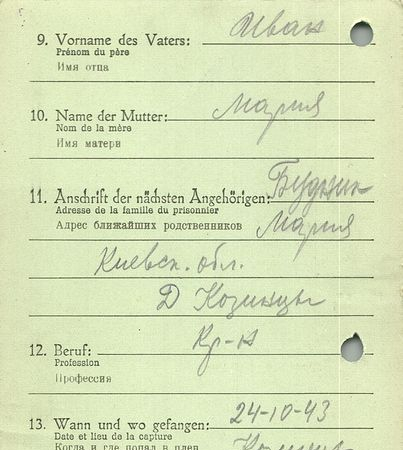 9. Vorname des Vaters: Иван
Prénom du père
Имя отца
10. Name der Mutter: Мария
Nom de la mère
Имя матери
11. Anschrift der nächsten Angehörigen: Будник
Adresse de la famille du prisonnier
Адрес ближайших родственников Мария
Киевск. обл.
Д Козинцы
12. Beruf: Кр-н
Profession
Профессия
13. Wann und wo gefangen: 24-10-43
Date et lieu de la capture
Когда и где попал в плен